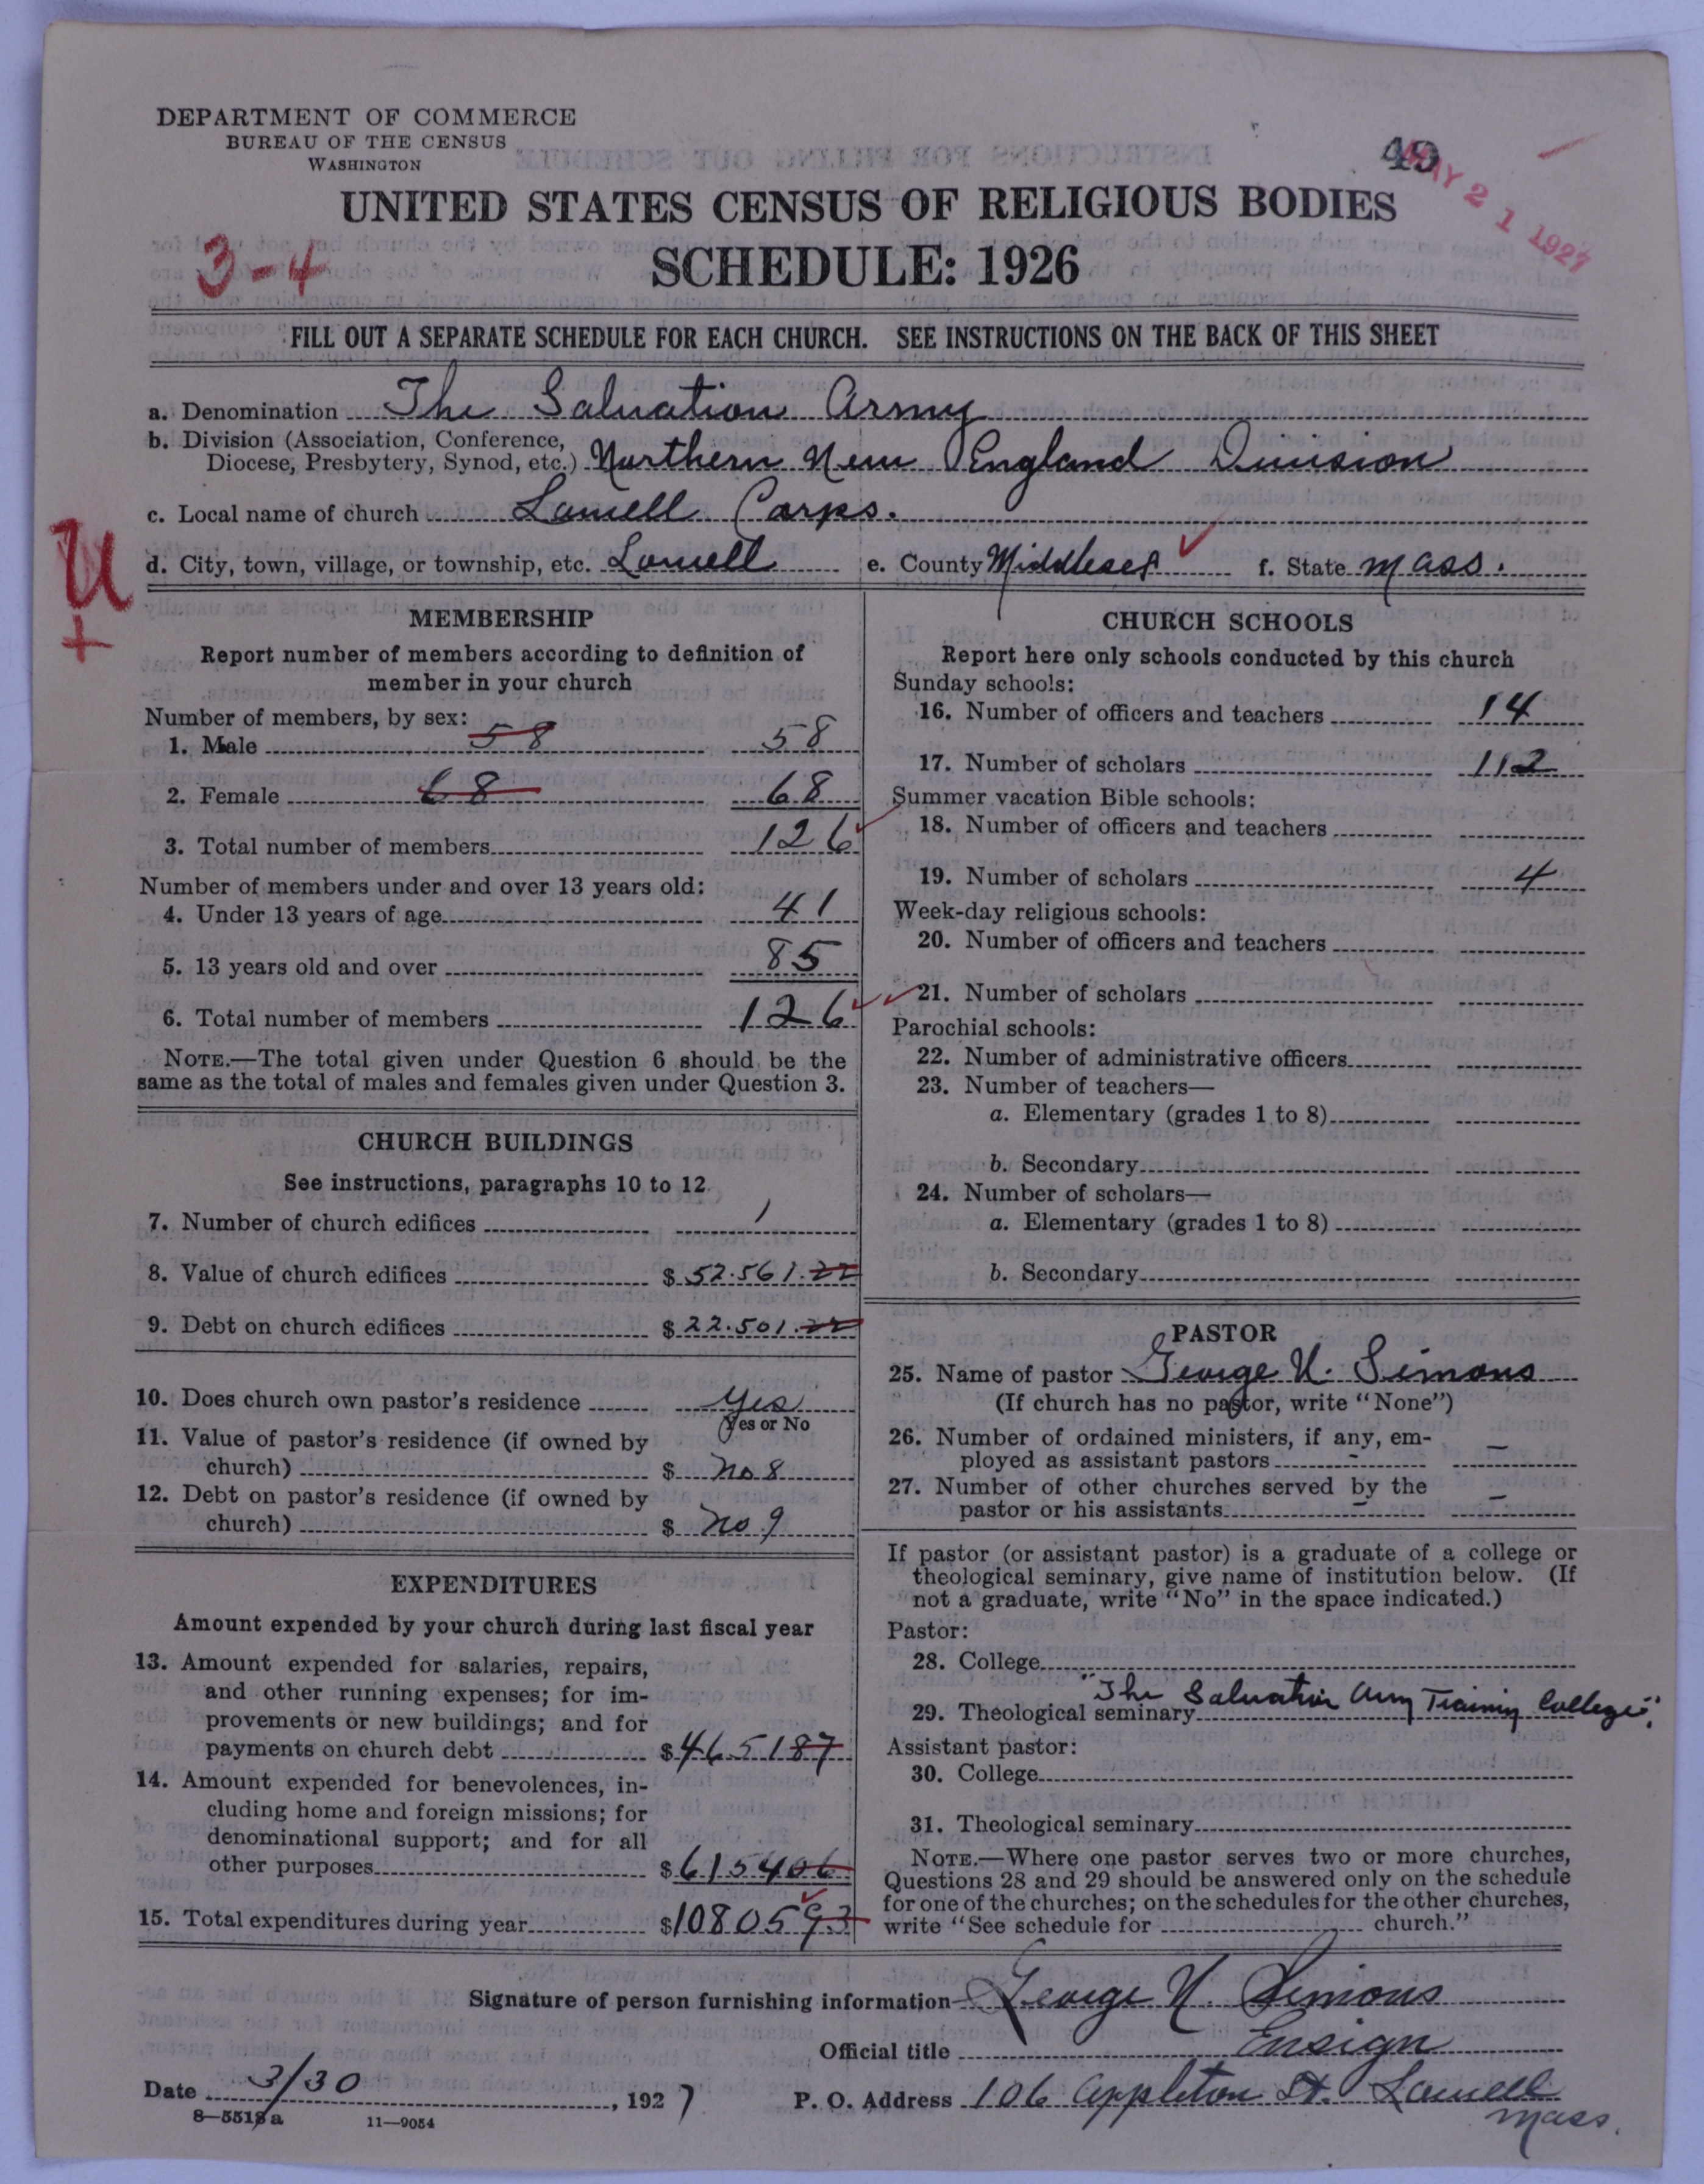 DEPARTMENT OF COMMERCE
BUREAU OF THE CENSUS
WASHINGTON
49
MAY 21 1927
UNITED STATES CENSUS OF RELIGIOUS BODIES
3-4
SCHEDULE: 1926
FILL OUT A SEPARATE SCHEDULE FOR EACH CHURCH. SEE INSTRUCTIONS ON THE BACK OF THIS SHEET
a. Denomination The Salvation Army
b. Division (Association, Conference,
Diocese, Presbytery, Synod, etc.) Northern New England Division
c. Local name of church Lowell Corps.
d. City, town, village, or township, etc. Lowell e. County Middlesex f. State Mass.
U
+
MEMBERSHIP
Report number of members according to definition of
member in your church
Number of members, by sex:
1. Male 58 58
2. Female 68 68
3. Total number of members 126
Number of members under and over 13 years old:
4. Under 13 years of age 41
5. 13 years old and over 85
6. Total number of members 126
NOTE.—The total given under Question 6 should be the
same as the total of males and females given under Question 3.
CHURCH BUILDINGS
See instructions, paragraphs 10 to 12
7. Number of church edifices 1
8. Value of church edifices $ 52.561.22
9. Debt on church edifices $ 22.501.22
10. Does church own pastor's residence Yes
Yes or No
11. Value of pastor's residence (if owned by
church) $ no 8
12. Debt on pastor's residence (if owned by
church) $ no 9
EXPENDITURES
Amount expended by your church during last fiscal year
13. Amount expended for salaries, repairs,
and other running expenses; for im-
provements or new buildings; and for
payments on church debt $ 465187
14. Amount expended for benevolences, in-
cluding home and foreign missions; for
denominational support; and for all
other purposes $ 615406
15. Total expenditures during year $ 1080593
CHURCH SCHOOLS
Report here only schools conducted by this church
Sunday schools:
16. Number of officers and teachers 14
17. Number of scholars 112
Summer vacation Bible schools:
18. Number of officers and teachers
19. Number of scholars 4
Week-day religious schools:
20. Number of officers and teachers
21. Number of scholars
Parochial schools:
22. Number of administrative officers
23. Number of teachers—
a. Elementary (grades 1 to 8)
b. Secondary
24. Number of scholars—
a. Elementary (grades 1 to 8)
b. Secondary
PASTOR
25. Name of pastor George N. Simons
(If church has no pastor, write "None")
26. Number of ordained ministers, if any, em-
ployed as assistant pastors - —
27. Number of other churches served by the
pastor or his assistants - —
If pastor (or assistant pastor) is a graduate of a college or
theological seminary, give name of institution below. (If
not a graduate, write "No" in the space indicated.)
Pastor:
28. College
29. Theological seminary "The Salvation Army Training College".
Assistant pastor:
30. College
31. Theological seminary
NOTE.—Where one pastor serves two or more churches,
Questions 28 and 29 should be answered only on the schedule
for one of the churches; on the schedules for the other churches,
write "See schedule for church."
Signature of person furnishing information George N. Simons
Official title Ensign
Date 3/30, 1927 P. O. Address 106 Appleton St. Lowell
Mass.
8—5518a 11—9054